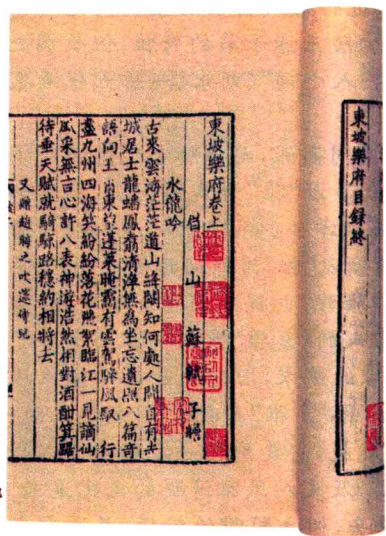 東坡樂府目錄終
東坡樂府卷上
眉山 蘇軾 子瞻
水龍吟
古來雲海茫茫道山絳闕知何處人間自有赤
城居士龍蟠鳳翥清淨無為坐忘遺照八篇奇
語向玉霄東望蓬萊晻靄有雲駕驂鳳馭 行
盡九州四海笑紛紛落花飛絮臨江一見謫仙
風采無言心許八表神遊浩然相對酒酣箕踞
待垂天賦就騎鯨路穩約相將去
又贈趙晦之吹笛侍兒